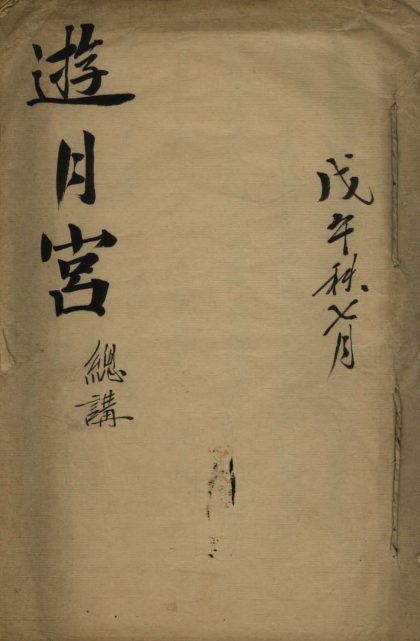 戊午秋七月
遊月宮
總講